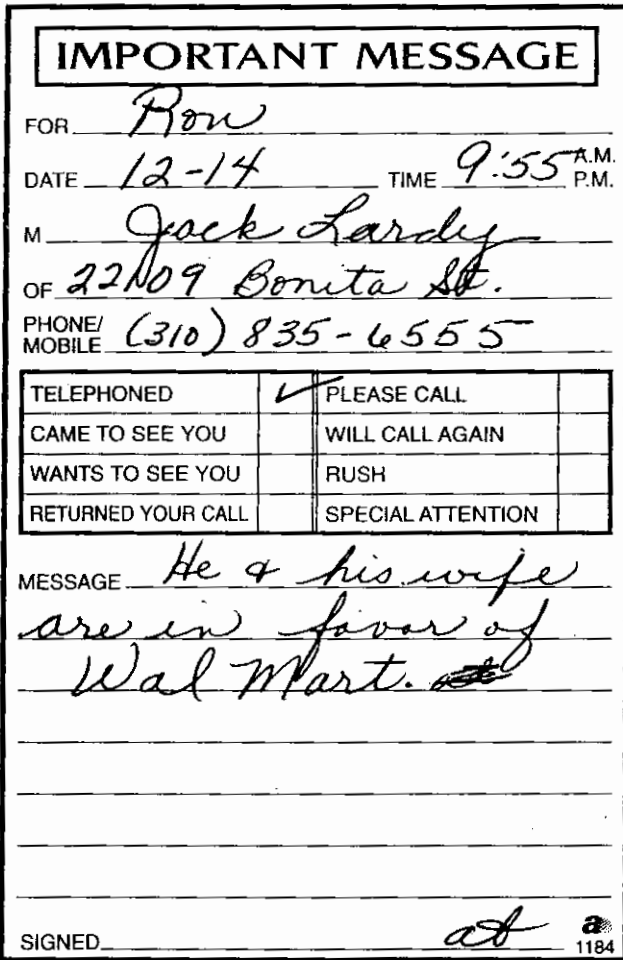 IMPORTANT MESSAGE
FOR Ron
DATE 12-14 TIME 9:55 A.M. P.M.
M Jack Lardy
OF Bonita St.
PHONE/ MOBILE (310) 835-6555
TELEPHONED ✓ PLEASE CALL
CAME TO SEE YOU WILL CALL AGAIN
WANTS TO SEE YOU RUSH
RETURNED YOUR CALL SPECIAL ATTENTION
MESSAGE He & his wife
are in favor of
Wal Mart.
SIGNED a
1184